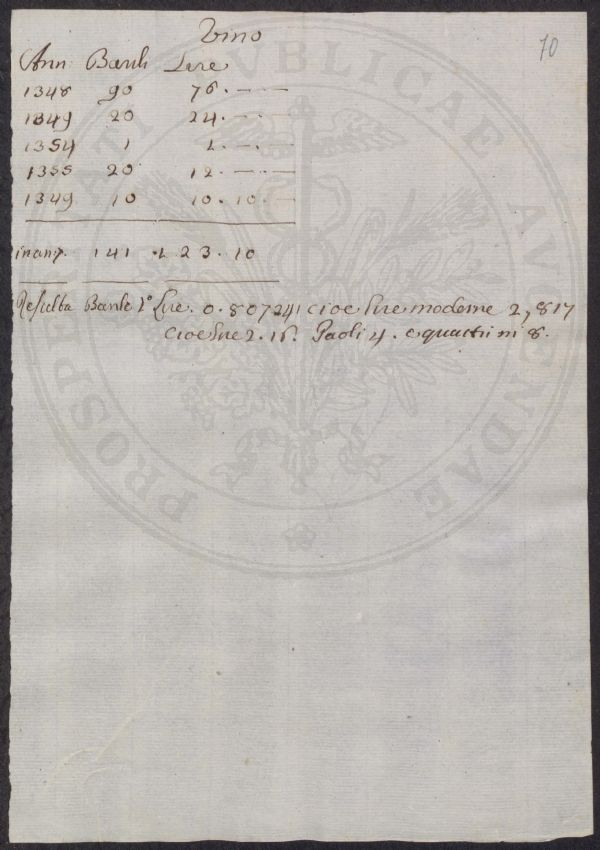 Vino
70
Ann Barili Lire
1348 90 76. — —
1349 20 24. — —
1354 1 1. — —
1355 20 12. — —
1349 10 10. 10. —
in any. 141 L 23. 10
Resulta Barile 1° Lire. 0.80724 cioe lire moderne 2,817
cioe lire 2. 16. Paoli 4. e quattrini 8.
PROSPERITATI PVBLICAE AVGENDAE